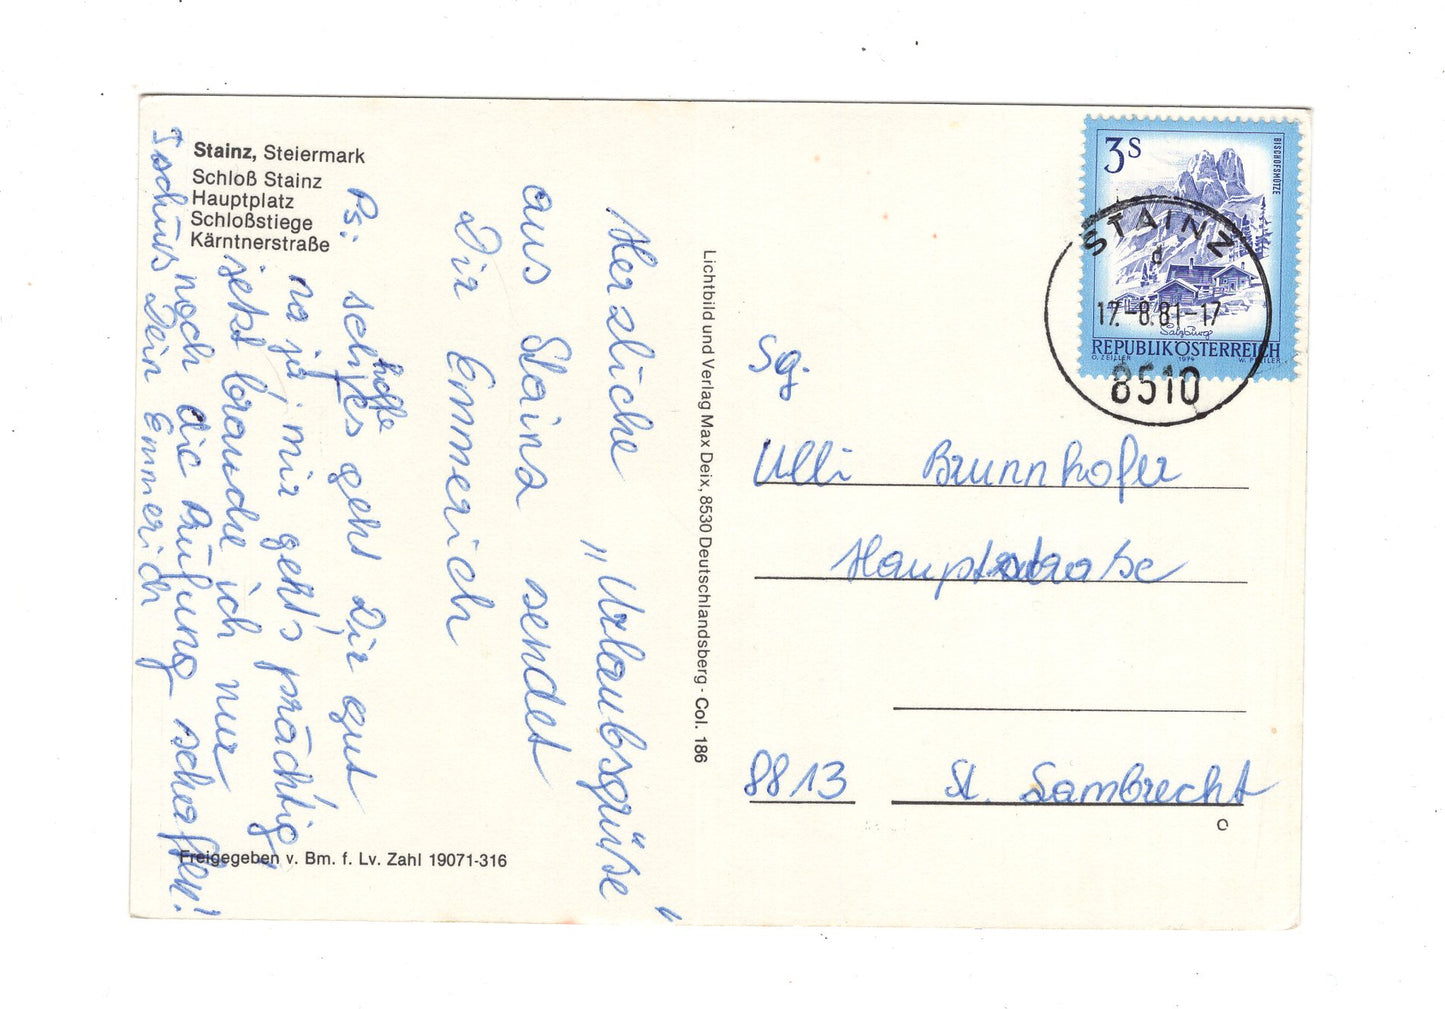 Stainz, Steiermark
Schloß Stainz
Hauptplatz
Schloßstiege
Kärntnerstraße
Herzliche „Urlaubsgrüße"
aus Stainz sendet
Dir Emmerich
Ps: hoffe es geht Dir gut
na ja, mir geht's prächtig,
jetzt brauche ich nur
noch die Prüfung schaffen!
Tschüß Dein Emmerich
Freigegeben v. Bm. f. Lv. Zahl 19071-316
Lichtbild und Verlag Max Deix, 8530 Deutschlandsberg - Col. 186
3S
BISCHOFSMÜTZE
Salzburg
REPUBLIK ÖSTERREICH
O. ZEILLER 1974 W. PFEILER
STAINZ
d
17.-8.81-17
8510
Sg.
Ulli Brunnhofer
Hauptstraße
8813 St. Lambrecht